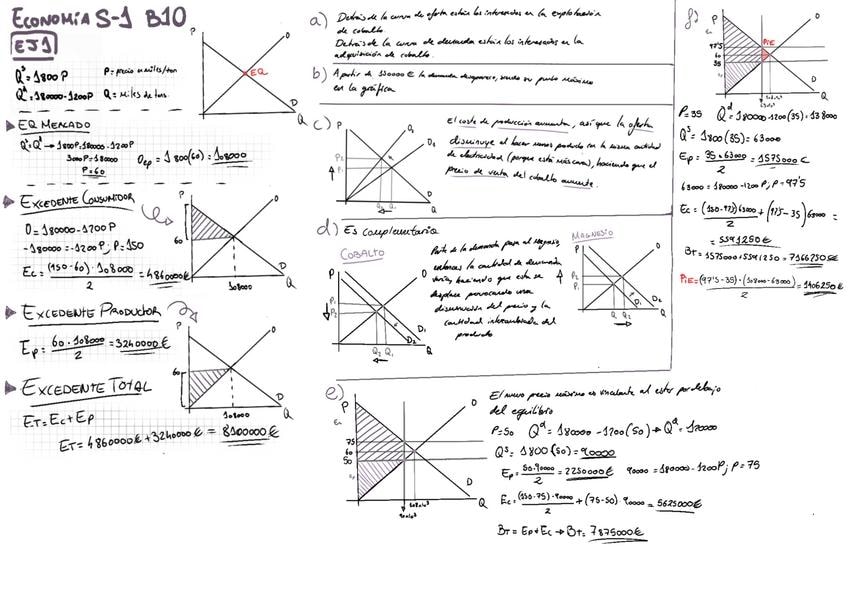 ECONOMÍA S-1 B10
EJ1
Qˢ = 1800P P = precio en miles/ton
Qᵈ = 180000 - 1200P Q = miles de tons.
P
O
EQ
D
Q
EQ MERCADO
Qˢ = Qᵈ → 1800P = 180000 - 1200P
3000P = 180000
P = 60
Oep = 1800(60) = 108000
EXCEDENTE CONSUMIDOR
0 = 180000 - 1200P
-180000 = -1200P; P = 150
Ec = (150-60) · 108000 / 2 = 4860000€
P
60
O
D
108000
Q
EXCEDENTE PRODUCTOR
Ep = 60 · 108000 / 2 = 3240000€
P
60
O
D
108000
Q
EXCEDENTE TOTAL
ET = Ec + Ep
ET = 4860000€ + 3240000€ = 8100000€
a) Detrás de la curva de oferta están los interesados en la explotación
de cobalto.
Detrás de la curva de demanda están los interesados en la
adquisición de cobalto.
b) A partir de 150000€ la demanda desaparece, siendo su punto máximo
en la gráfica.
c)
P
P2
P1
O2
O1
D
Q2 Q1
Q
El coste de producción aumenta, así que la oferta
disminuye al hacer menos producto con la misma cantidad
de electricidad (porque está más cara), haciendo que el
precio de venta del cobalto aumente.
d) Es complementario
COBALTO
P
P1
P2
O
D1
D2
Q2 Q1
Q
Parte de la demanda pasa al magnesio,
entonces la cantidad de demanda
varía, haciendo que esta se
desplace provocando una
disminución del precio y la
cantidad intercambiada del
producto
MAGNESIO
P
P2
P1
O
D1 D2
Q1 Q2
Q
e)
P
75
60
50
O
D
Q
90x10³
108x10³
El nuevo precio máximo es vinculante al estar por debajo
del equilibrio
P = 50 Qᵈ = 180000 - 1200(50) → Qᵈ = 120000
Qˢ = 1800(50) = 90000
Ep = 50·90000 / 2 = 2250000€ 90000 = 180000 - 1200P; P = 75
Ec = (150-75) · 90000 / 2 + (75-50) · 90000 = 5625000€
BT = Ep + Ec → BT = 7875000€
f)
P
97'5
60
35
O
PiE
D
Q
P = 35 Qᵈ = 180000 - 1200(35) = 138000
Qˢ = 1800(35) = 63000
Ep = 35 · 63000 / 2 = 1575000€
63000 = 180000 - 1200P; P = 97'5
BT =
PiE = (97'5-35) · (108000-63000) / 2 = 1406250€